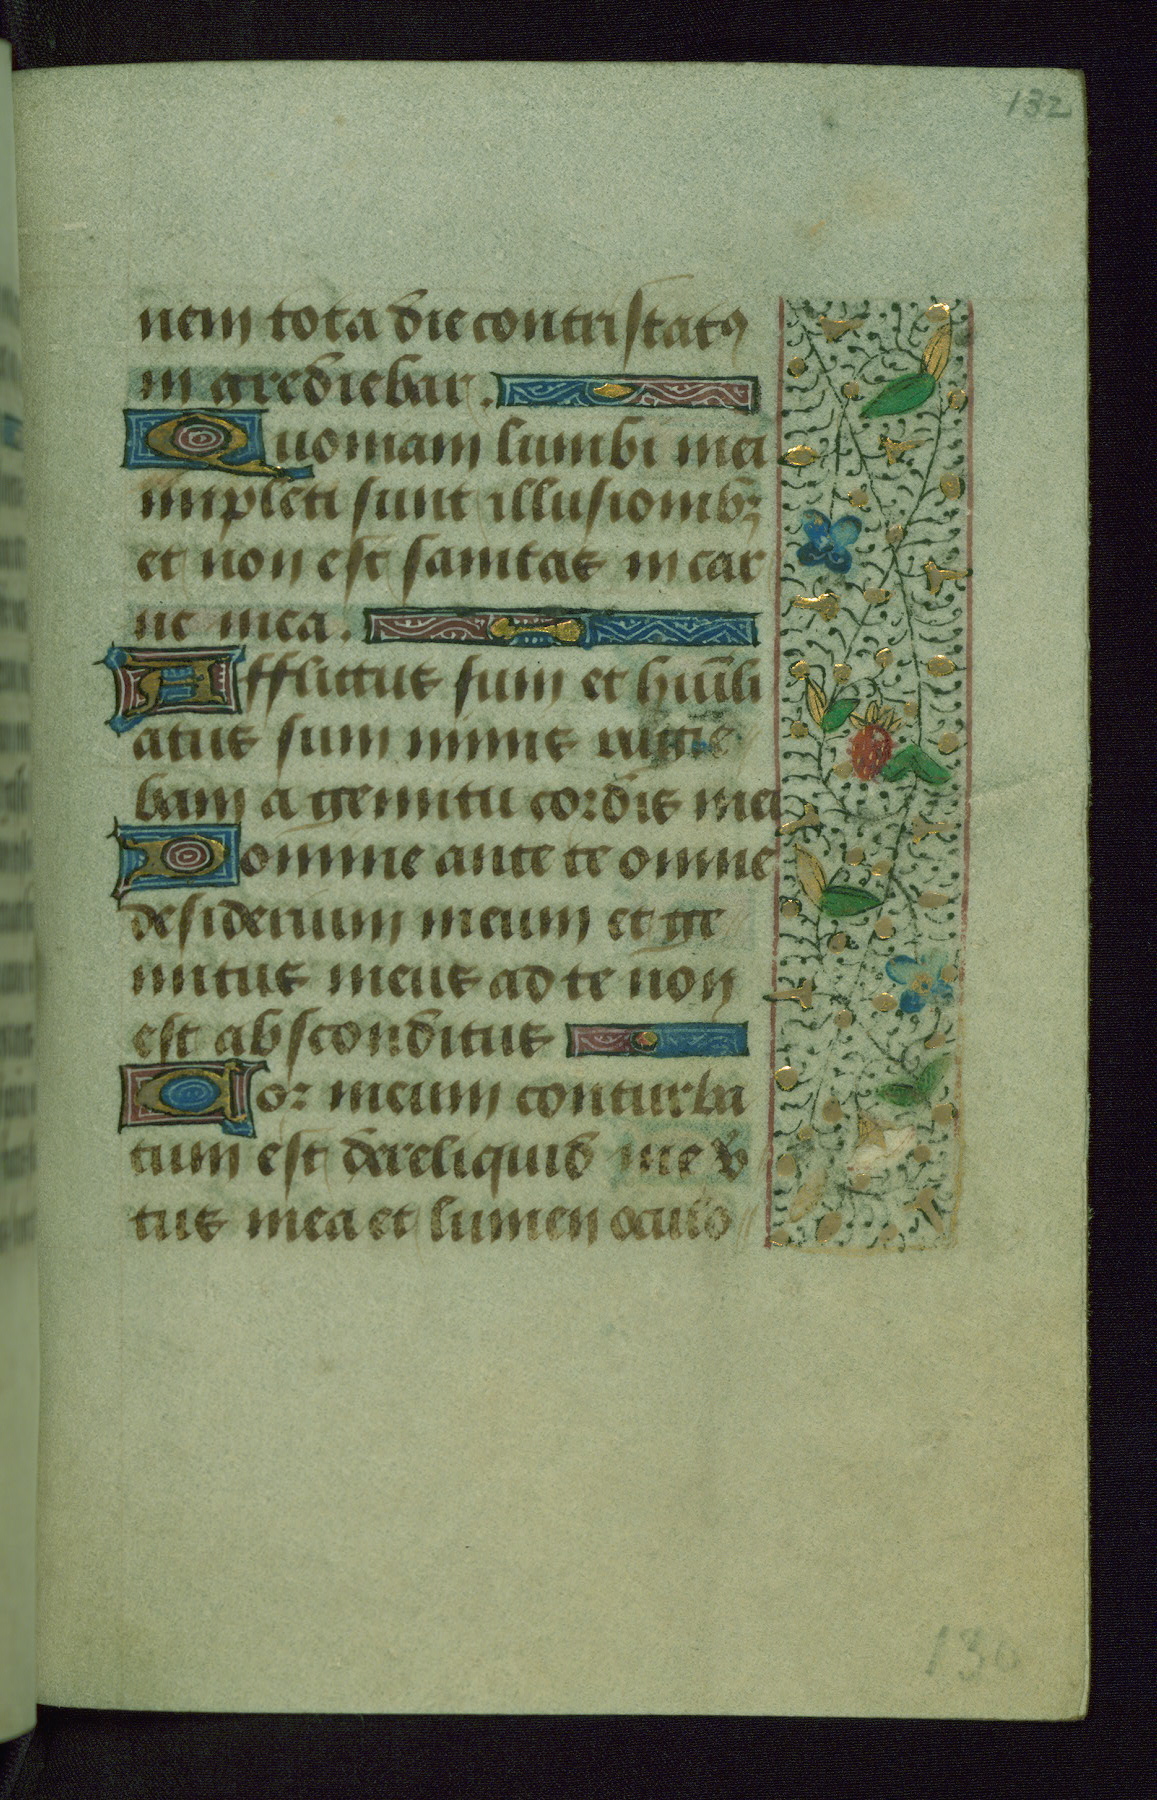 132
nem tota die contristatꝰ
in grediebar.
Quoniam lumbi mei
impleti sunt illusionibꝫ
et non est sanitas in car
ne mea.
Afflictus sum et humĩli
atus sum nimis rugie
bam a gemitu cordis mei
Domine ante te omne
desiderium meum et ge
mitus meus ad te non
est absconditus
Cor meum conturba
tum est dereliquid me v̾
tus mea et lumen oculo
130